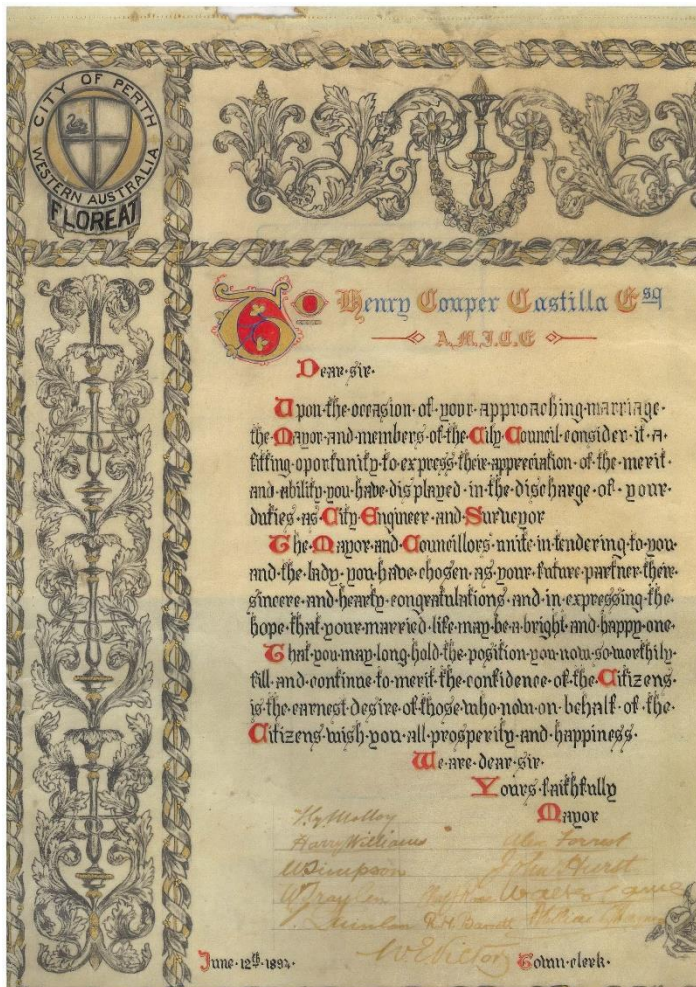 CITY OF PERTH
WESTERN AUSTRALIA
FLOREAT
To Henry Couper Castilla Esq
A.M.I.C.E
Dear·sir·
Upon·the·occasion·of·your·approaching·marriage·
the·Mayor·and·members·of·the·City·Council·consider·it·a·
fitting·oportunity·to·express·their·appreciation·of·the·merit·
and·ability·you·have·displayed·in·the·discharge·of·your·
duties·as·City·Engineer·and·Surveyor
The·Mayor·and·Councillors·unite·in·tendering·to·you·
and·the·lady·you·have·chosen·as·your·future·partner·their·
sincere·and·hearty·congratulations·and·in·expressing·the·
hope·that·your·married·life·may·be·a·bright·and·happy·one·
That·you·may·long·hold·the·position·you·now·so·worthily·
fill·and·continue·to·merit·the·confidence·of·the·Citizens·
is·the·earnest·desire·of·those·who·now·on·behalf·of·the·
Citizens·wish·you·all·prosperity·and·happiness·
We·are·dear·sir·
Yours·faithfully
Mayor
Hy Molloy
Harry Williams Alex Forrest
W Simpson John Hurst
Quinlan R.H. Barrett
June·12th·189
W.E. Victor Town·clerk·